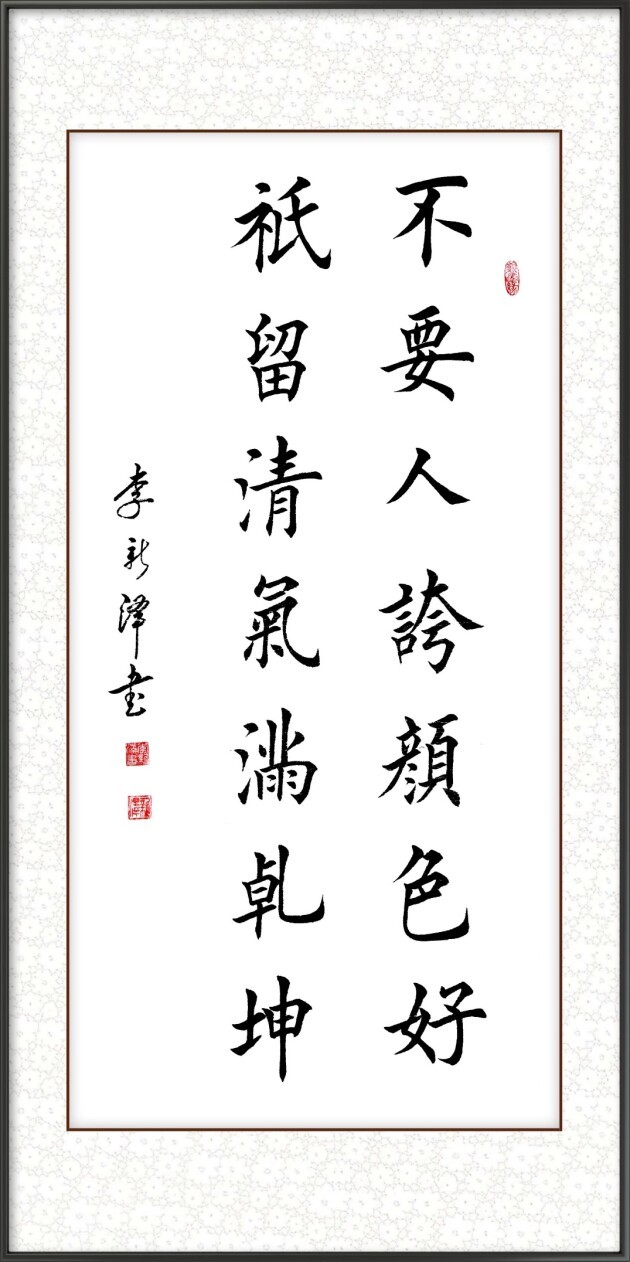 不要人誇顏色好
祇留清氣滿乾坤
李新泽书